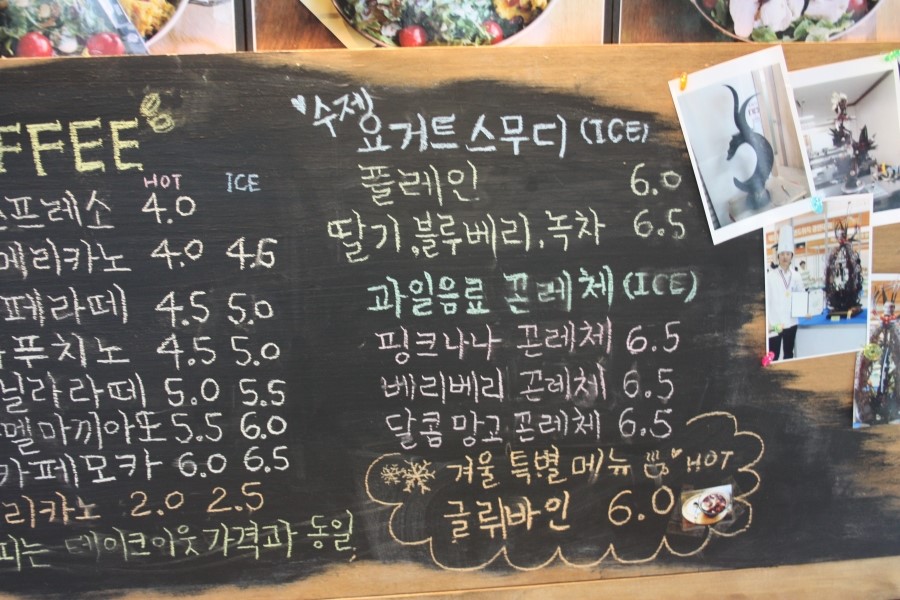 FFEE
HOT ICE
스프레소 4.0
메리카노 4.0 4.6
페라떼 4.5 5.0
푸치노 4.5 5.0
닐라라떼 5.0 5.5
멜마끼아또 5.5 6.0
카페모카 6.0 6.5
리카노 2.0 2.5
피는 테이크아웃 가격과 동일
수제
요거트스무디 (ICE)
플레인 6.0
딸기.블루베리.녹차 6.5
과일음료 꼰레체 (ICE)
핑크나나 꼰레체 6.5
베리베리 꼰레체 6.5
달콤망고 꼰레체 6.5
겨울 특별 메뉴 HOT
글뤼바인 6.0